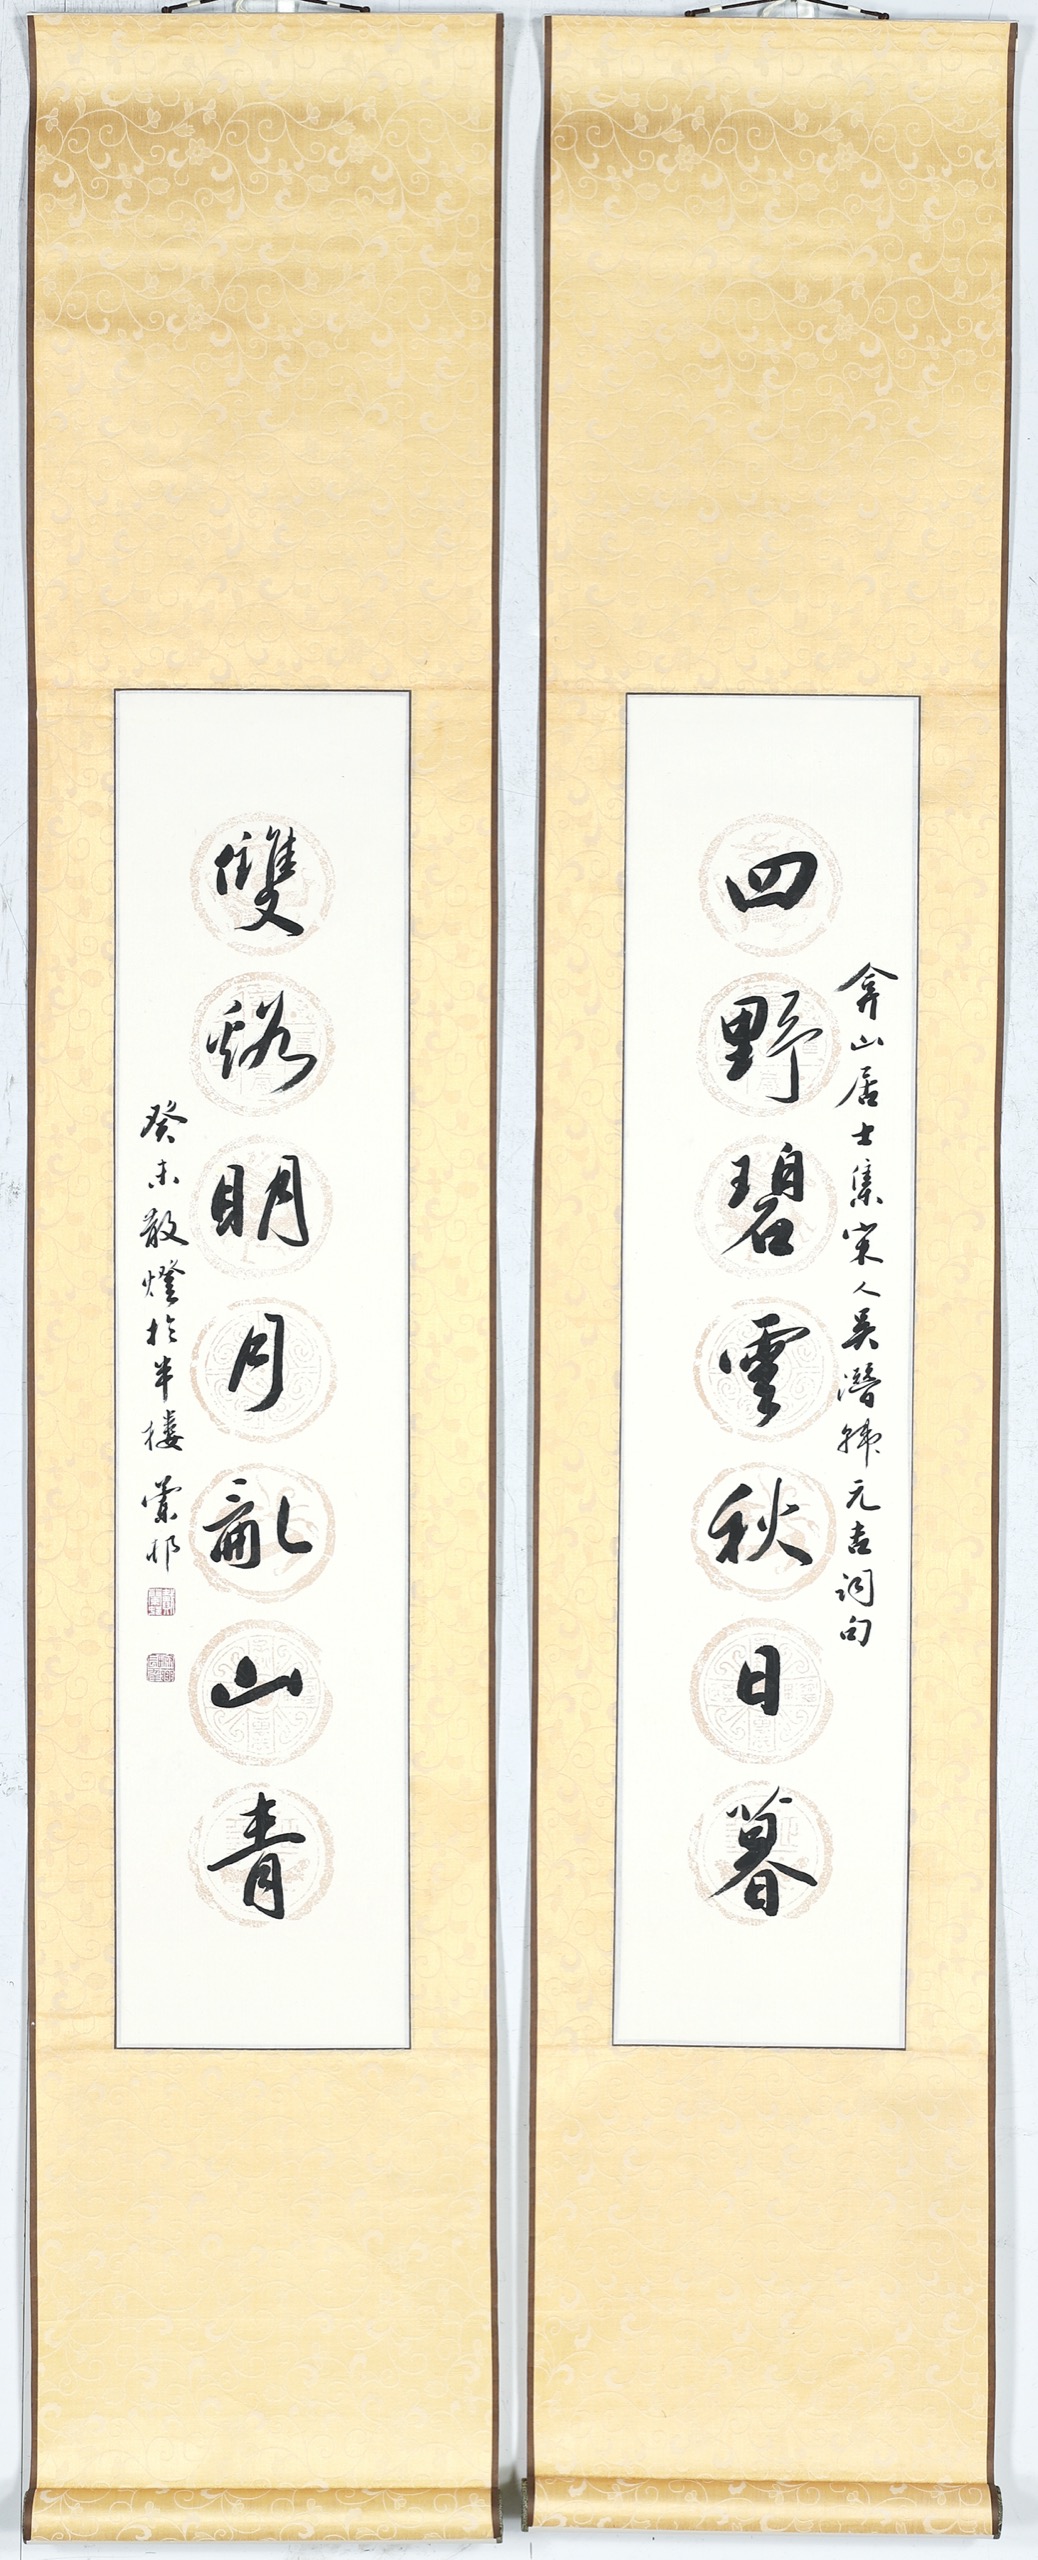 弇山居士集宋人吳潛韓元吉詞句
四野碧雲秋日暮
雙谿明月亂山青
癸未散燈於半樓